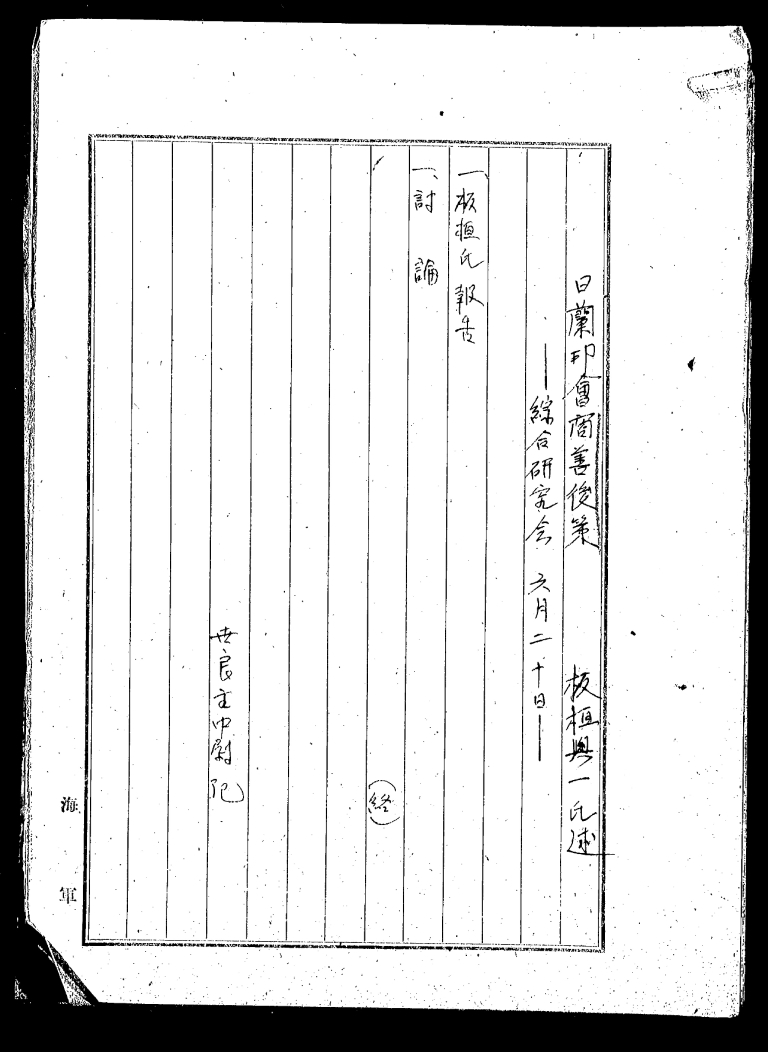 日蘭印會商善後策 板垣與一氏述
――綜合研究会 六月二十日――
一、板垣氏報告
一、討論
(終)
世良主中尉記
海軍